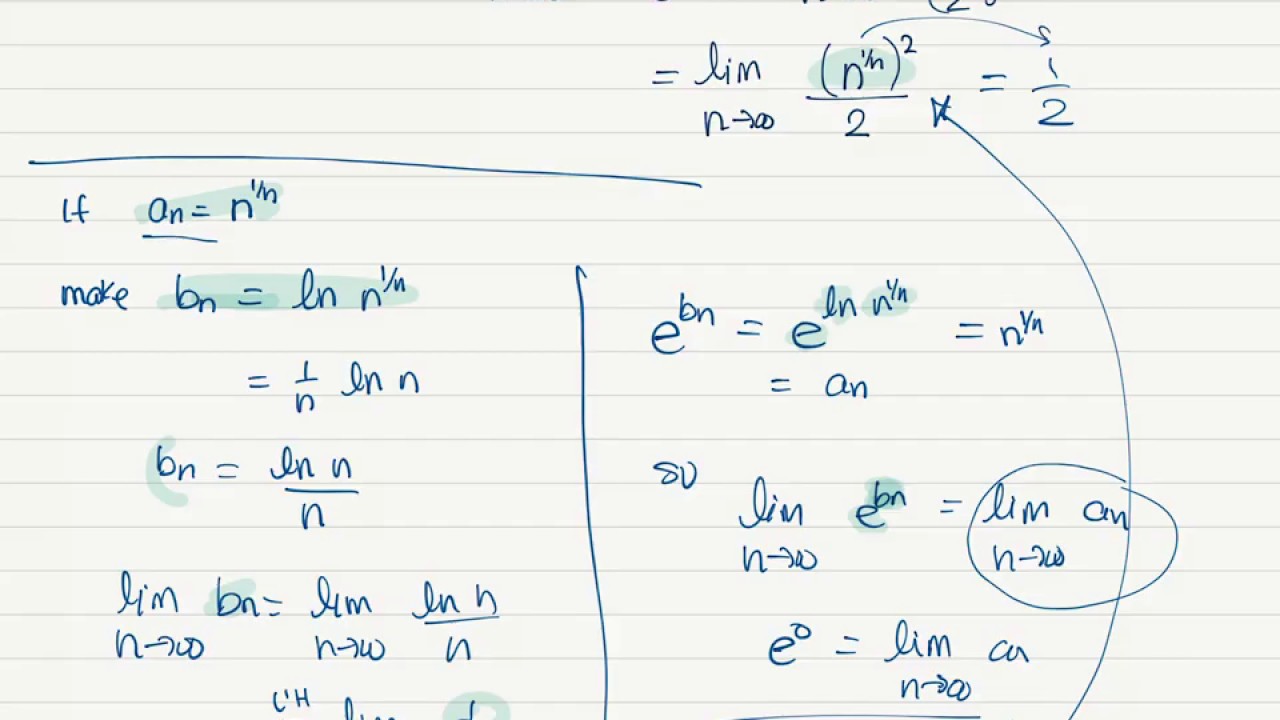 = lim n→∞ (n^{1/n})^2 / 2 = 1/2
If an = n^{1/n}
make bn = ln n^{1/n}
= 1/n ln n
bn = ln n / n
lim n→∞ bn = lim n→∞ ln n / n
L'H lim
e^{bn} = e^{ln n^{1/n}} = n^{1/n}
= an
so
lim n→∞ e^{bn} = lim n→∞ an
e^0 = lim n→∞ an